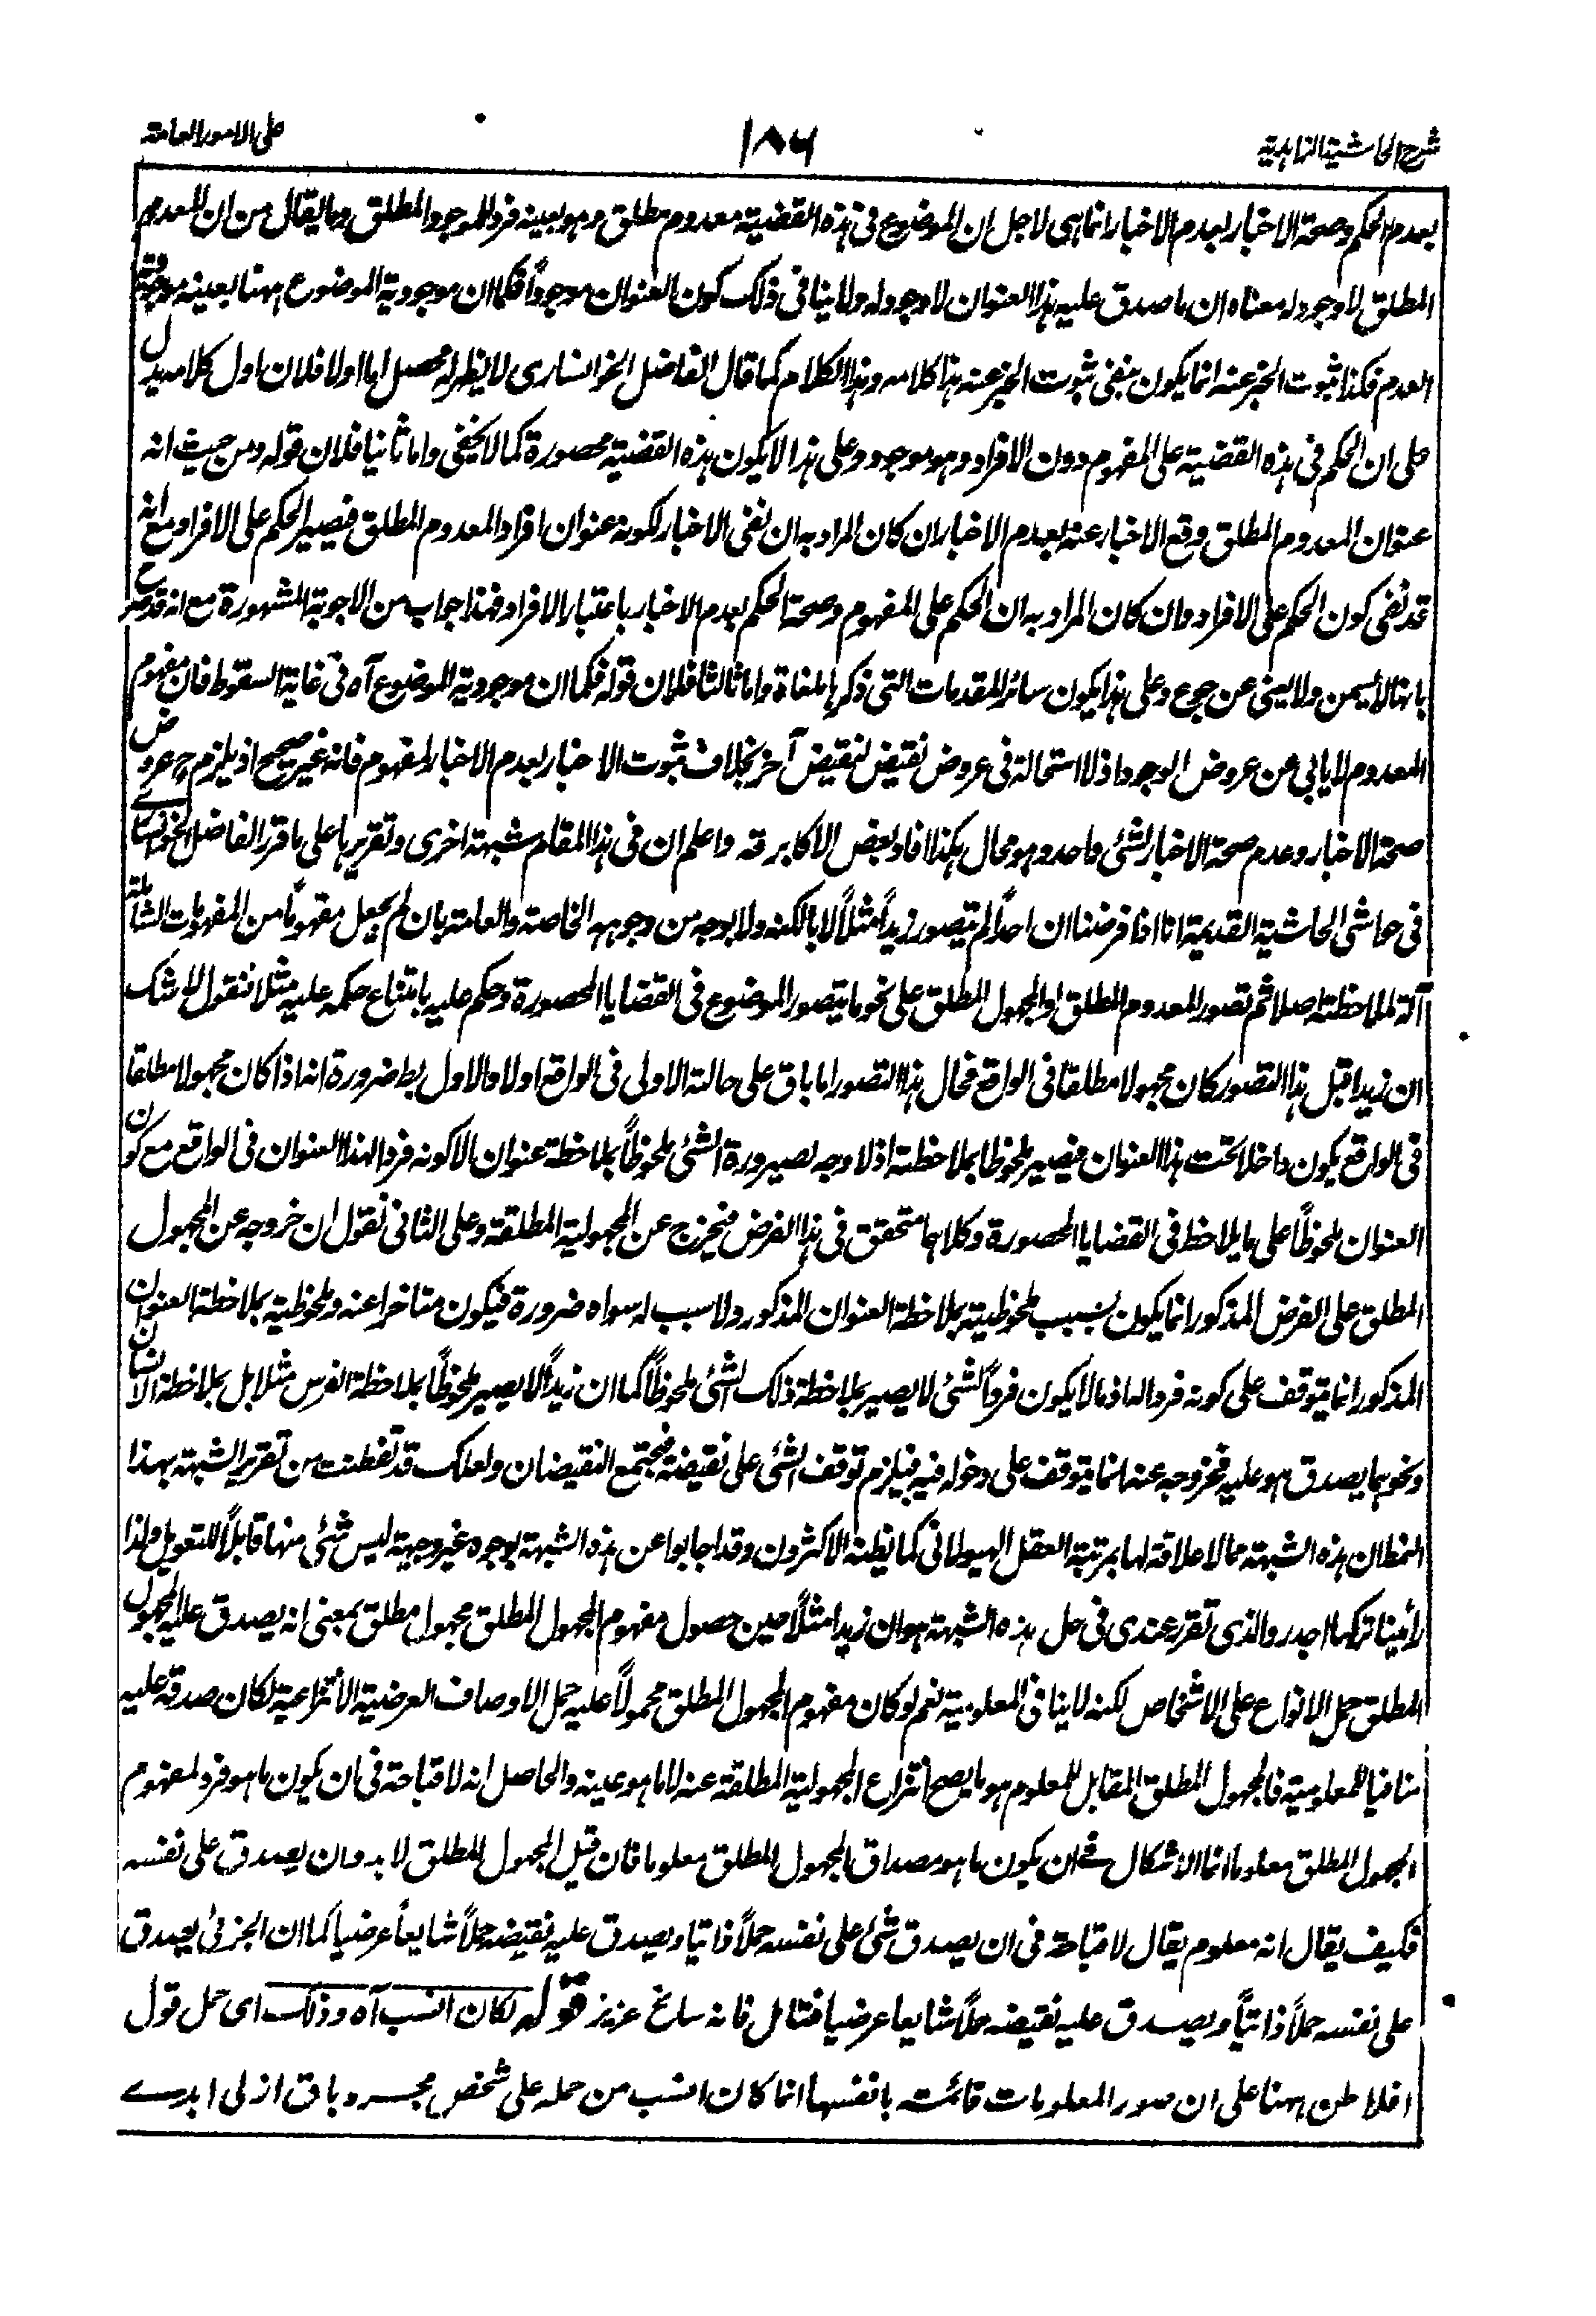 شرح الحاشية الزاهدية
١٨٦
على الامور العامة
بعدم الحكم وصحة الاخبار بعدم الاخبار انما هى لاجل ان الموضوع فى هذه القضية معدوم مطلق وهو بعينه فرد للموجود المطلق وما يقال من ان المعدوم
المطلق لا وجود له معناه ان ما صدق عليه هذا العنوان لا وجود له ولا ينافى ذلك كون العنوان موجوداً فكما ان موجودية الموضوع ههنا بعينه موجودية
العدم فكذا ثبوت الخبر عنه انما يكون بنفى ثبوت الخبر عنه هذا كلامه وهذا الكلام كما قال الفاضل الخوانسارى لا يظهر له محصل اما اولا فلان اول كلامه يدل
على ان الحكم فى هذه القضية على المفهوم دون الافراد وهو موجود وعلى هذا لا يكون هذه القضية محصورة كما لا يخفى واما ثانيا فلان قوله ومن حيث انه
عنوان المعدوم المطلق وقع الاخبار عنه بعدم الاخبار ان كان المراد به ان نفى الاخبار لكونه عنوان افراد المعدوم المطلق فيصير الحكم على الافراد مع انه
قد نفى كون الحكم على الافراد وان كان المراد به ان الحكم على المفهوم وصحة الحكم بعدم الاخبار باعتبار الافراد فهذا جواب من الاجوبة المشهورة مع انه قد صرح
بانها لا يسمن ولا يغنى عن جوع وعلى هذا يكون سائر المقدمات التى ذكرها ملغاة واما ثالثا فلان قوله فكما ان موجودية الموضوع آه فى غاية السقوط فان مفهوم
المعدوم لا يابى عن عروض الوجود اذ لا استحالة فى عروض نقيض لنقيض آخر بخلاف ثبوت الاخبار بعدم الاخبار لمفهوم فانه غير صحيح اذ يلزم ح عروض
صحة الاخبار وعدم صحة الاخبار لشئ واحد وهو محال هكذا افاد بعض الاكابر قه واعلم ان فى هذا المقام شبهة اخرى وتقريرها على ما قرر الفاضل الخوانسارى
فى حواشى الحاشية القديمة انا اذا فرضنا ان احداً لم يتصور زيداً مثلاً لا بالكنه ولا بوجه من وجوهه الخاصة والعامة بان لم يجعل مفهوماً من المفهومات الشاملة
آلة لملاحظته اصلا ثم تصور المعدوم المطلق او المجهول المطلق على نحو ما يتصور الموضوع فى القضايا المحصورة وحكم عليه بامتناع حكمه عليه مثلا فنقول لا شك
ان زيدا قبل هذا التصور كان مجهولا مطلقا فى الواقع فحال هذا التصور اما باق على حالته الاولى فى الواقع اولا والاول بط ضرورة انه اذا كان مجهولا مطلقا
فى الواقع يكون داخلا تحت هذا العنوان فيصير ملحوظا بملاحظته اذ لا وجه لصيرورة الشئ ملحوظاً بملاحظة عنوان الا كونه فردا لهذا العنوان فى الواقع مع كون
العنوان ملحوظاً على ما يلاحظ فى القضايا المحصورة وكلاهما متحقق فى هذا الفرض فيخرج عن المجهولية المطلقة وعلى الثانى نقول ان خروجه عن المجهول
المطلق على الفرض المذكور انما يكون بسبب ملحوظيته بملاحظة العنوان المذكور ولا سبب له سواه ضرورة فيكون متاخرا عنه وملحوظيته بملاحظة العنوان
المذكور انما يتوقف على كونه فردا له اذ ما لا يكون فرداً لشئ لا يصير بملاحظة ذلك الشئ ملحوظاً كما ان زيداً لا يصير ملحوظاً بملاحظة الفرس مثلا بل بملاحظة الانسان
ونحوه مما يصدق هو عليه فخروجه عنه انما يتوقف على دخوله فيه فيلزم توقف الشئ على نقيضه فيجتمع النقيضان ولعلك قد تفطنت من تقرير الشبهة بهذا
النمط ان هذه الشبهة مما لا علاقة لها بمرتبة العقل الهيولانى كما يظنه الاكثرون وقد اجابوا عن هذه الشبهة بوجوه غير وجيهة ليس شئ منها قابلاً للتعويل ولذا
رأينا تركها اجدر والذى تقرر عندى فى حل هذه الشبهة هو ان زيدا مثلاً حين حصول مفهوم المجهول المطلق مجهول مطلق بمعنى انه يصدق عليه المجهول
المطلق حمل الانواع على الاشخاص لكنه لا ينافى المعلومية نعم لو كان مفهوم المجهول المطلق محمولاً عليه حمل الاوصاف العرضية الانتزاعية لكان صدقه عليه
منافيا للمعلومية فالمجهول المطلق المقابل للمعلوم هو ما يصح انتزاع المجهولية المطلقة عنه لا ما هو عينه والحاصل انه لا قباحة فى ان يكون ما هو فرد لمفهوم
المجهول المطلق معلوما انما الاشكال فى ان يكون ما هو مصداق المجهول المطلق معلوما فان قيل المجهول المطلق لا بد وان يصدق على نفسه
فكيف يقال انه معلوم يقال لا قباحة فى ان يصدق شئ على نفسه حملاً ذاتيا ويصدق عليه نقيضه حملاً شايعاً عرضياً كما ان الجزئى يصدق
على نفسه حملاً ذاتياً ويصدق عليه نقيضه حملاً شايعا عرضيا فتامل فانه سانح عزيز قوله لكان انسب آه وذلك اى حمل قول
افلاطن ههنا على ان صور المعلومات قائمة بانفسها انما كان انسب من حمله على شخص مجرد باق ازلى ابدى